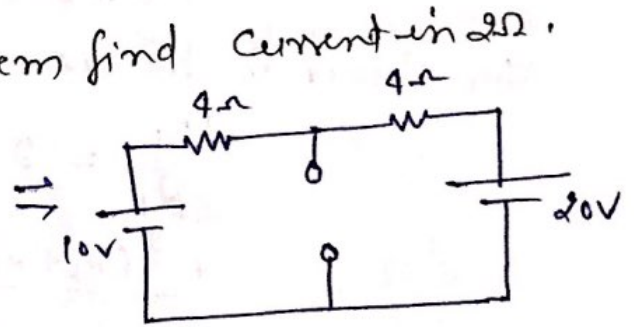 em find Current in 2Ω.
4Ω
4Ω
⇒
10V
20V